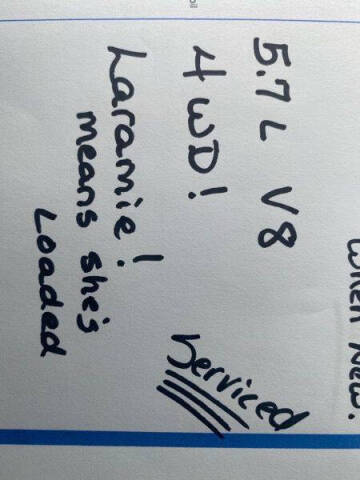 when New.
5.7 L V8
4WD!
Serviced
Laramie!
means she's
Loaded